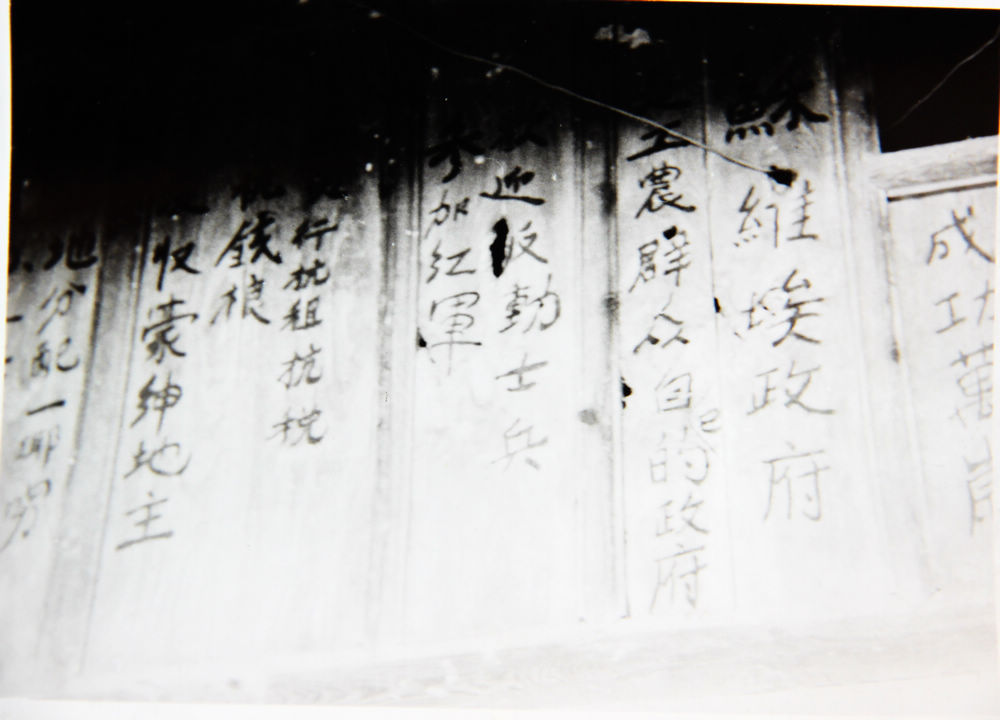 成功萬
蘇維埃政府
工農群众自己的政府
欢迎反動士兵
参加红軍
行抗租抗税
抗錢粮
收豪紳地主
地分配一